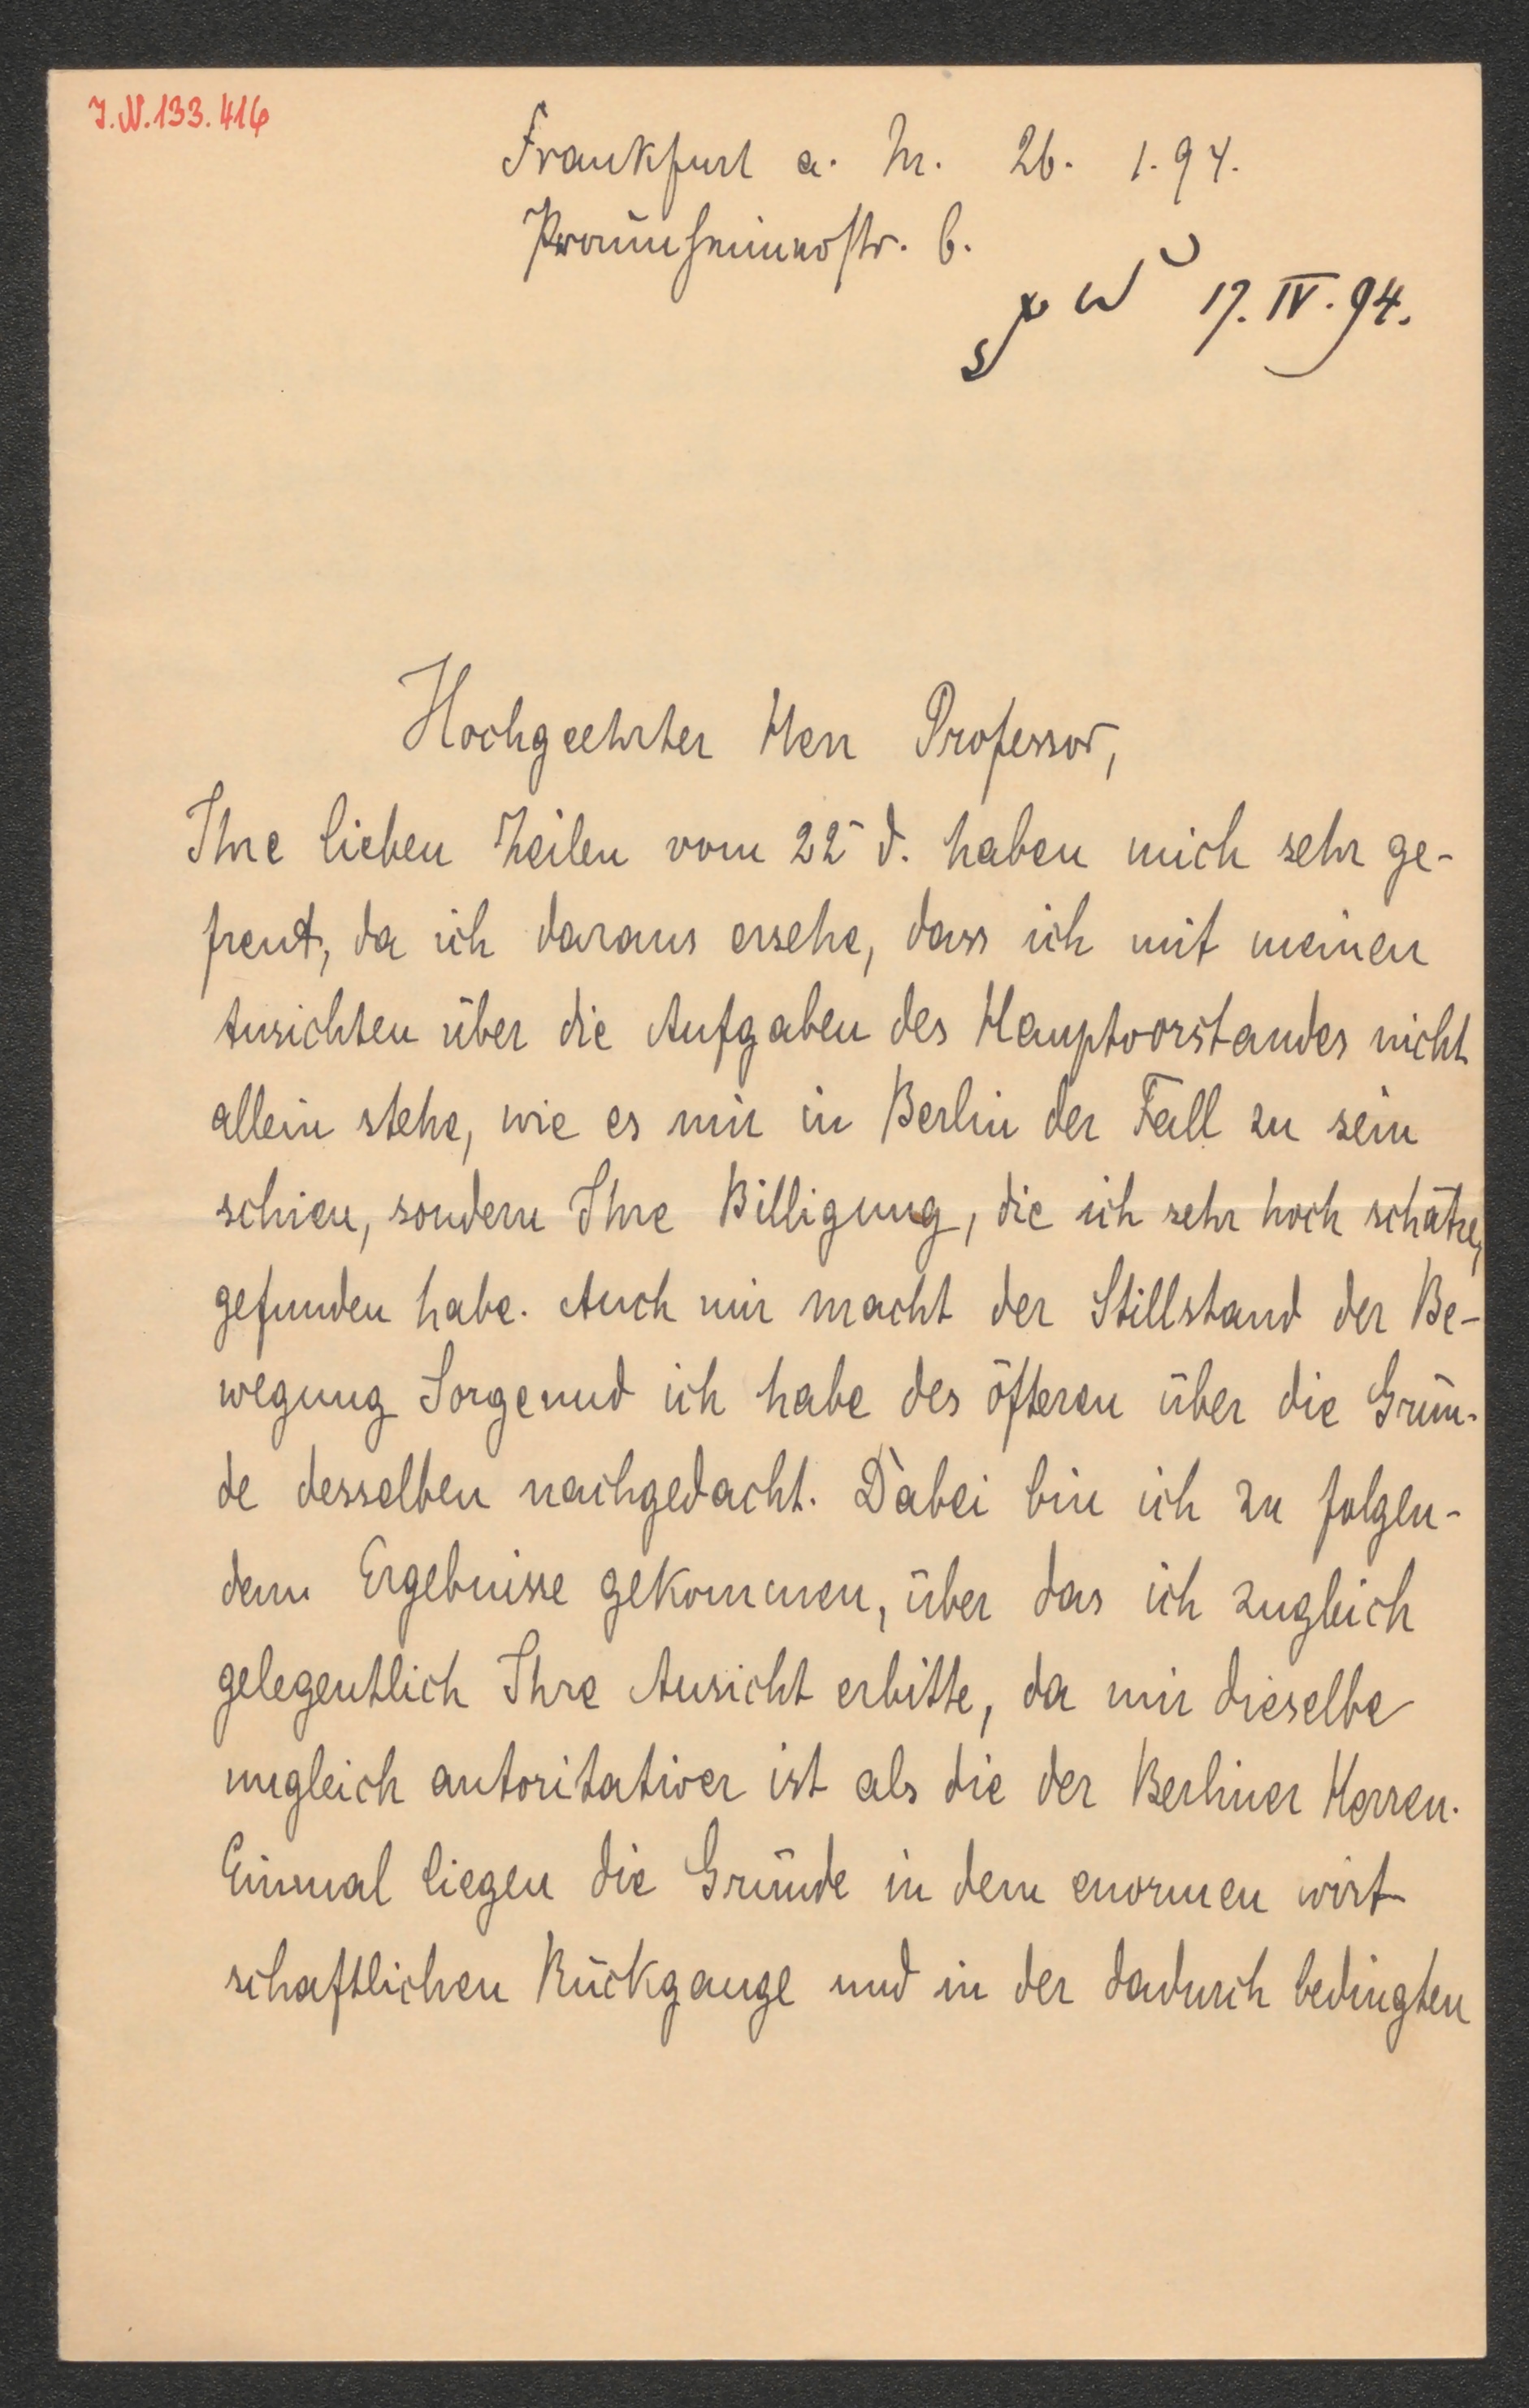 J.N. 133.416
Frankfurt a. M. 26. 1. 94.
Praunheimerstr. 6.
17. IV. 94.
Hochgeehrter Herr Professor,
Ihre lieben Zeilen vom 22 d. haben mich sehr ge-
freut, da ich daraus ersehe, dass ich mit meinen
Ansichten über die Aufgaben des Hauptvorstandes nicht
allein stehe, wie es mir in Berlin der Fall zu sein
schien, sondern Ihre Billigung, die ich sehr hoch schätze,
gefunden habe. Auch mir macht der Stillstand der Be-
wegung Sorge und ich habe des öfteren über die Grün-
de desselben nachgedacht. Dabei bin ich zu folgen-
dem Ergebnisse gekommen, über das ich zugleich
gelegentlich Ihre Ansicht erbitte, da mir dieselbe
ungleich autoritativer ist als die der Berliner Herren.
Einmal liegen die Gründe in dem enormen wirt-
schaftlichen Rückgange und in der dadurch bedingten